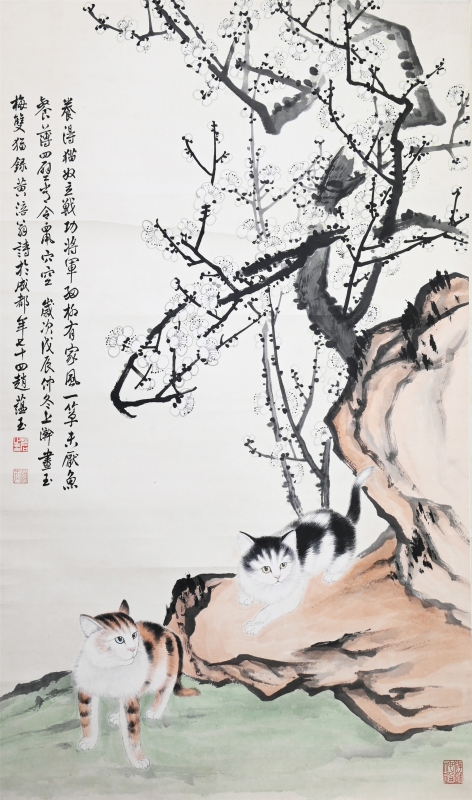 養得猫奴立戰功將軍細柳有家風一箪未厭魚
餐薄四壁當令鼠穴空 歲次戊辰仲冬上澣畫玉
梅雙猫錄黃涪翁詩於成都年七十四趙蘊玉